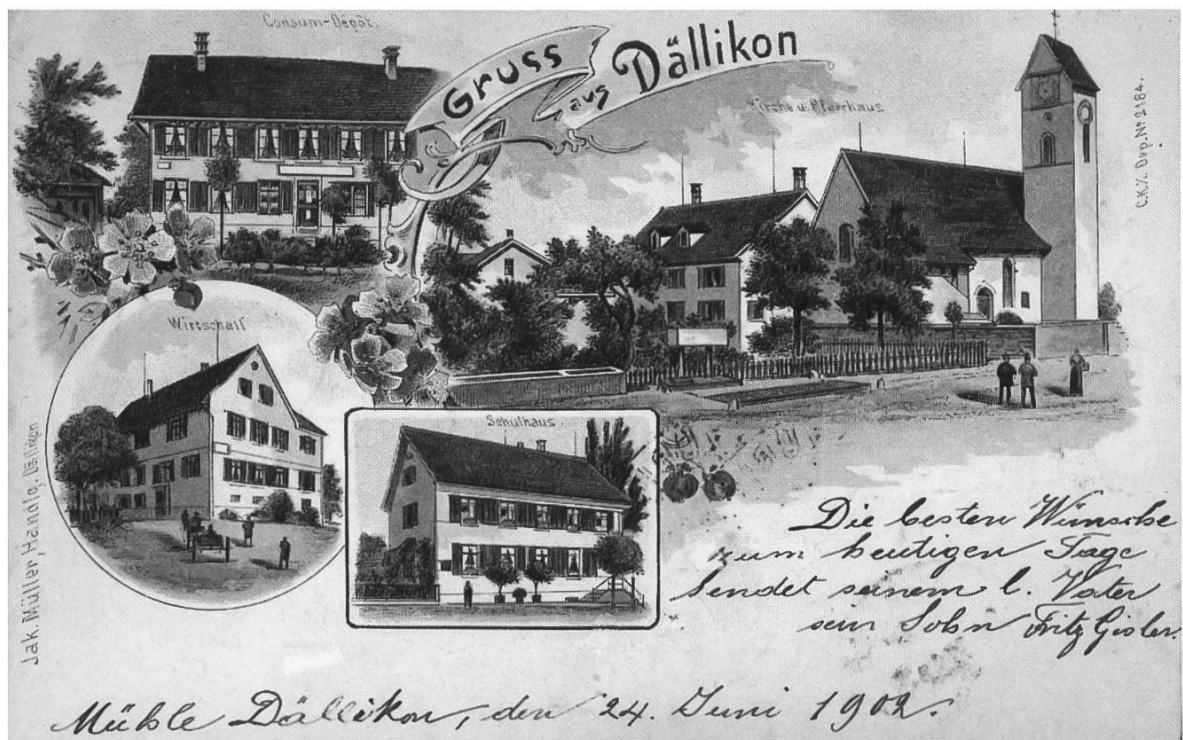 Consum-Dépôt.
Gruss
aus Dällikon
Kirche u. Pfarrhaus
C.K.Z. Dep. Nº 2184.
Wirtschaft
Schulhaus.
Jak. Müller, Handlg. Dällikon
Die besten Wünsche
zum heutigen Tage
sendet seinem l. Vater
sein Sohn Fritz Gisler.
Mühle Dällikon, den 24. Juni 1902.